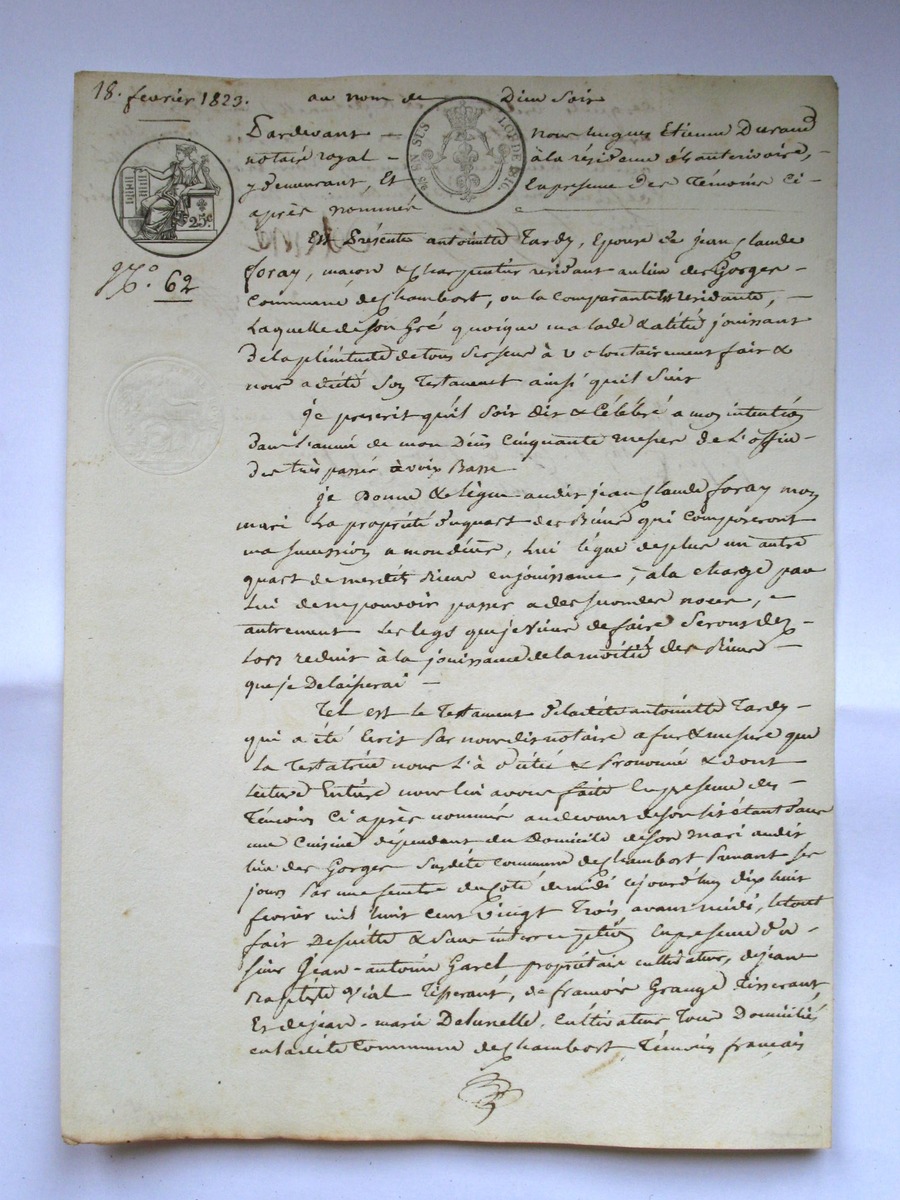 18. fevrier 1823. au nom de Dieu soit
Pardevant - nous Etienne Durand
notaire royal - à la résidence d'hauterivoire,
y demeurant, Et En presence des Témoins ci-
après nommés
EN SUS
LOI DE
25c
N.o 62
Est Présente antoinette Tardy, Epouse de jean Claude
foray, macon & Charpentier residant au lieu des Gorges
Commune de Chambort, ou la comparante est residante, -
Laquelle de son Gré quoique malade & alitée jouissant
de la plénitude de tous ses sens à volontairement fait &
nous a dicté Son Testament ainsi quil suit
je prescrit qu'il soit dit & Célébré a mon intention
dans l'année de mon Décès Cinquante messes de L'office
des très passés à voix Basse
je Donne & Lègue audit jean Claude foray mon
mari La propriété d'un quart des Biens qui composeront
ma succession a mon décès, Lui lègue de plus un autre
quart de mesdits Biens en jouissance, à la charge par
Lui de ne pouvoir passer a des secondes noces, -
autrement Les legs que je viens de faire Seront des-
Lors reduit à la jouissance de la moitié des Biens -
que je Delaisserai -
Tel est le Testament de ladite antoinette Tardy -
qui a été Ecrit Par nous dit notaire a fur & mesure que
La Testatrice nous L'à dicté & Prononcé & dont
Lecture Entière nous lui avons faite En presence des
Témoins Ci après nommés au devant de son lit étant dans
une Cuisine dépendant du Domicile de son mari audit
lieu des Gorges Susdite Commune de Chambort Prenant ses
jours Par une fenetre du coté de midi cejourd'hui dix huit
fevrier mil huit cent vingt Trois, avant midi, le tout
fait De suitte & Sans interruption En presence de
sieur Jean-antoine Garel propriétaire cultivateur, de jean
Baptiste Vial Tisserant, de francois Grange Tisserant,
Et de jean-marie Delunelle, Cultivateur Tous Domiciliés
en ladite Commune de Chambort, Témoins français